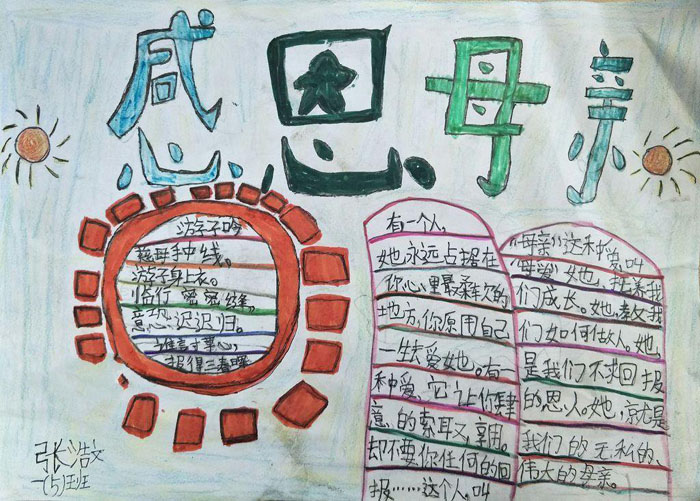 感恩母亲
游子吟
慈母手中线。
游子身上衣。
临行密密缝,
意恐迟迟归。
谁言寸草心,
报得三春晖
有一个人,
她永远占据在
你心里最柔欠的
地方,你愿用自己
一生去爱她。有一
种爱,它让你肆
意的索取,享用,
却不要你任何的回
报……这个人,叫
"母亲"这种爱,叫
"母爱"她,抚养我
们成长。她,教我
们如何做人。她,
是我们不求回报
的恩人。她,就是
我们的无私的、
伟大的母亲。
张浩文
一(5)班